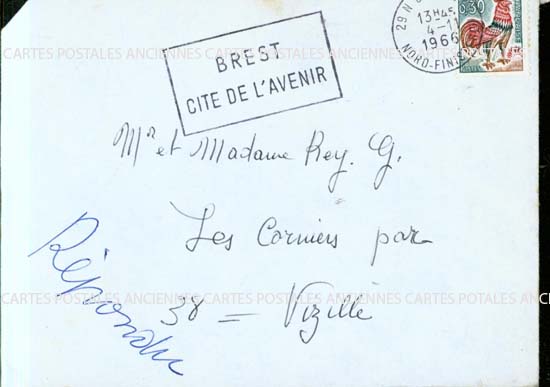 BREST
CITE DE L'AVENIR
29 N
13H45
4-11
1966
NORD-FINIS
0,30
CARTES POSTALES ANCIENNES CARTES POSTALES ANCIENNES CARTES POSTALES ANCIENNES
Mr et Madame Rey. G.
Les Corniers par
38 = Vizille
Répondu
CARTES POSTALES ANCIENNES CARTES POTALES ANCIENNES CARTES POSTALES ANCIENNES